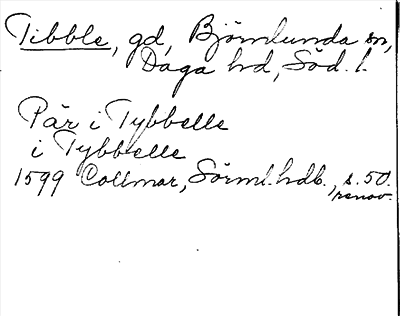 Tibble, gd, Björnlunda sn,
Daga hd, Söd. l.
Pär i Tybbelle
i Tybbelle
1599 Collmar, Sörml. hdl., s. 50.
renov.